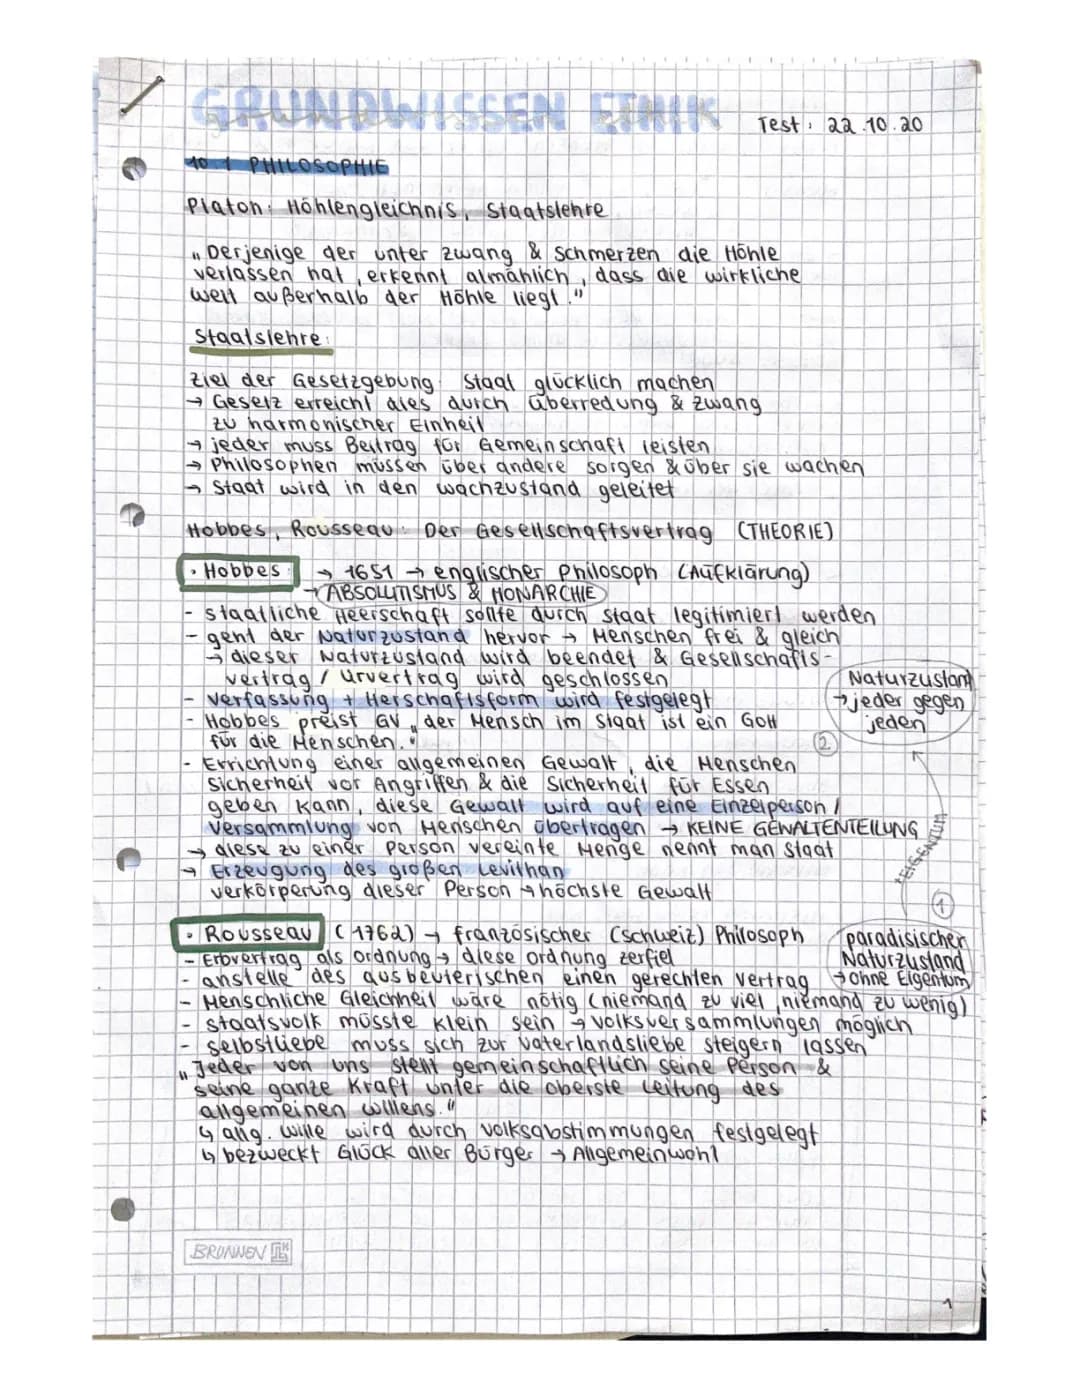 GRUNDWISSEN ETHIK
Test: 22.10.20
10.1 PHILOSOPHIE
Platon: Höhlengleichnis, Staatslehre
"Derjenige der unter Zwang & Schmerzen die Höhle
verlassen hat, erkennt almählich, dass die wirkliche
Welt außerhalb der Höhle liegt."
Staatslehre:
Ziel der Gesetzgebung: Staat glücklich machen
→ Gesetz erreicht dies durch Überredung & Zwang
zu harmonischer Einheit
→ jeder muss Beitrag für Gemeinschaft leisten
→ Philosophen müssen über andere sorgen & über sie wachen
→ Staat wird in den Wachzustand geleitet
Hobbes, Rousseau: Der Gesellschaftsvertrag (THEORIE)
• Hobbes: → 1651 → englischer Philosoph (Aufklärung)
→ ABSOLUTISMUS & MONARCHIE
- staatliche Heerschaft sollte durch Staat legitimiert werden
- geht der Naturzustand hervor → Menschen frei & gleich
→ dieser Naturzustand wird beendet & Gesellschafts-
vertrag / Urvertrag wird geschlossen
- Verfassung + Herschaftsform wird festgelegt
- Hobbes preist GV "der Mensch im Staat ist ein Gott
für die Menschen."
Naturzustand
→ jeder gegen
jeden
2
- Errichtung einer allgemeinen Gewalt, die Menschen
Sicherheit vor Angriffen & die Sicherheit für Essen
geben kann, diese Gewalt wird auf eine Einzelperson /
Versammlung von Menschen übertragen → KEINE GEWALTENTEILUNG
→ diese zu einer Person vereinte Menge nennt man Staat
→ Erzeugung des großen Levithan
verkörperung dieser Person → höchste Gewalt
+EIGENTUM
1
• Rousseau (1762) → französischer (Schweiz) Philosoph
paradisischer
Naturzustand
→ ohne Eigentum
- Erbvertrag als Ordnung → diese Ordnung zerfiel
- anstelle des ausbeuterischen einen gerechten Vertrag
- Menschliche Gleichheit wäre nötig (niemand zu viel, niemand zu wenig)
- Staatsvolk müsste klein sein → Volksversammlungen möglich
- Selbstliebe muss sich zur Vaterlandsliebe steigern lassen
"Jeder von uns stellt gemeinschaftlich seine Person &
seine ganze Kraft unter die oberste Leitung des
allgemeinen Willens."
↳ allg. Wille wird durch Volksabstimmungen festgelegt
↳ bezweckt Glück aller Bürger → Allgemeinwohl
BRUNNEN
1